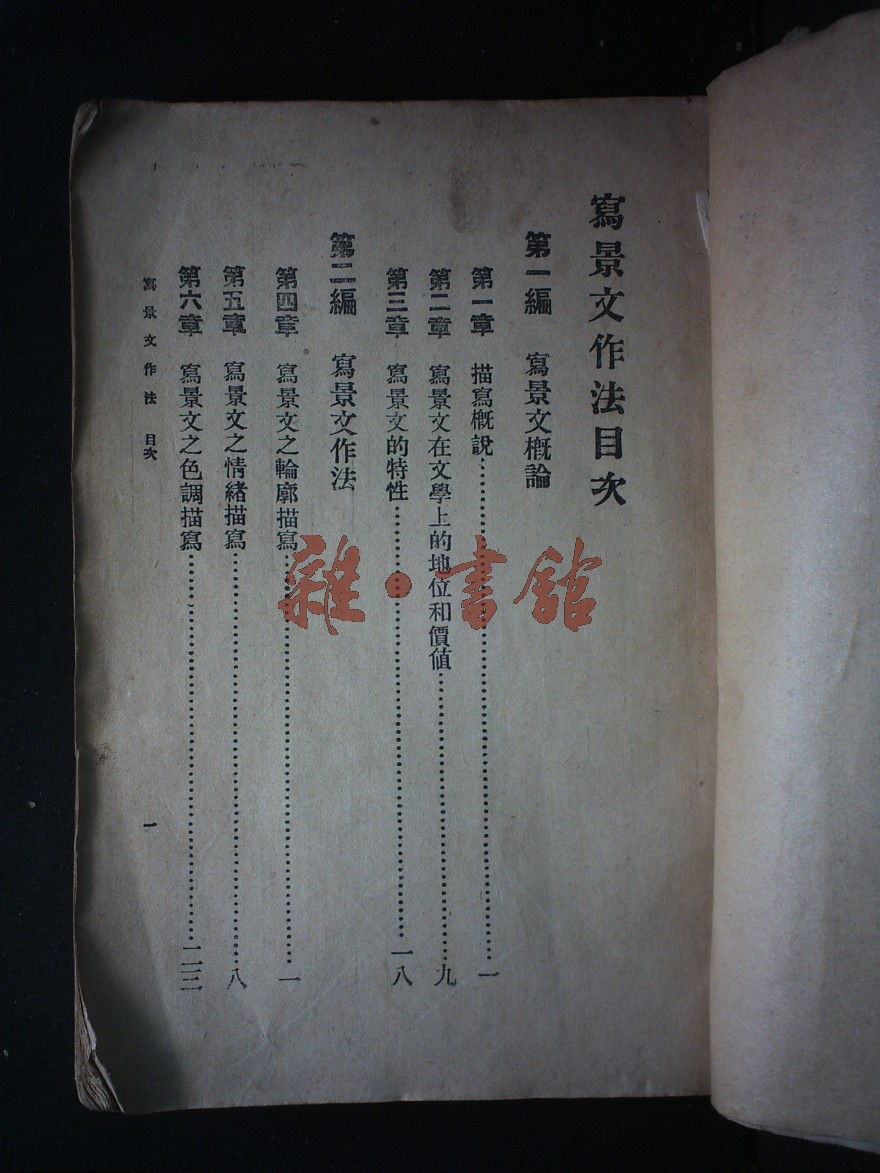 寫景文作法目次
第一編 寫景文概論
第一章 描寫概說……一
第二章 寫景文在文學上的地位和價値……九
第三章 寫景文的特性……一八
第二編 寫景文作法
第四章 寫景文之輪廓描寫……一
第五章 寫景文之情緒描寫……八
第六章 寫景文之色調描寫……二三
寫景文作法 目次 一
雜·書館